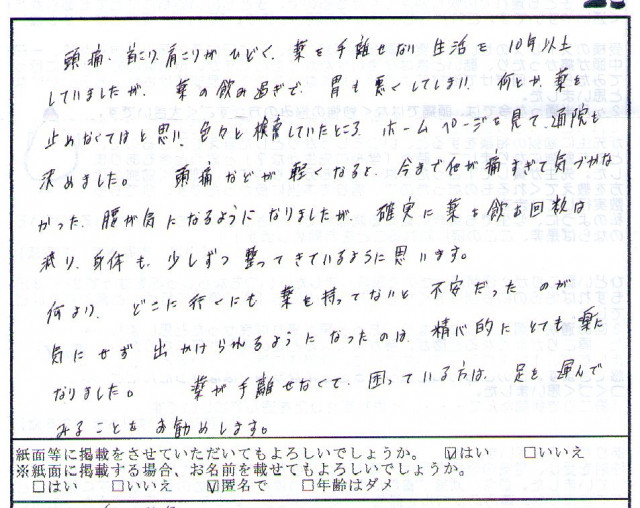 頭痛、首こり、肩こりがひどく、薬を手離せない生活を10年以上
していましたが、薬の飲み過ぎで、胃も悪くしてしまい、何とか薬を
止めなくてはと思い、色々と検索していたところ、ホームページを見て、通院を
決めました。 頭痛などが軽くなると、今まで他が痛すぎて気づかな
かった、腰が気になるようになりましたが、確実に薬を飲む回数は
減り、身体も、少しずつ整ってきているように思います。
何より、どこに行くにも薬を持ってないと不安だったのが
気にせず出かけられるようになったのは、精心的にとても楽に
なりました。 薬が手離せなくて、困っている方は、足を運んで
みることをお勧めします。
紙面等に掲載をさせていただいてもよろしいでしょうか。 ☑はい □いいえ
※紙面に掲載する場合、お名前を載せてもよろしいでしょうか。
□はい □いいえ ☑匿名で □年齢はダメ